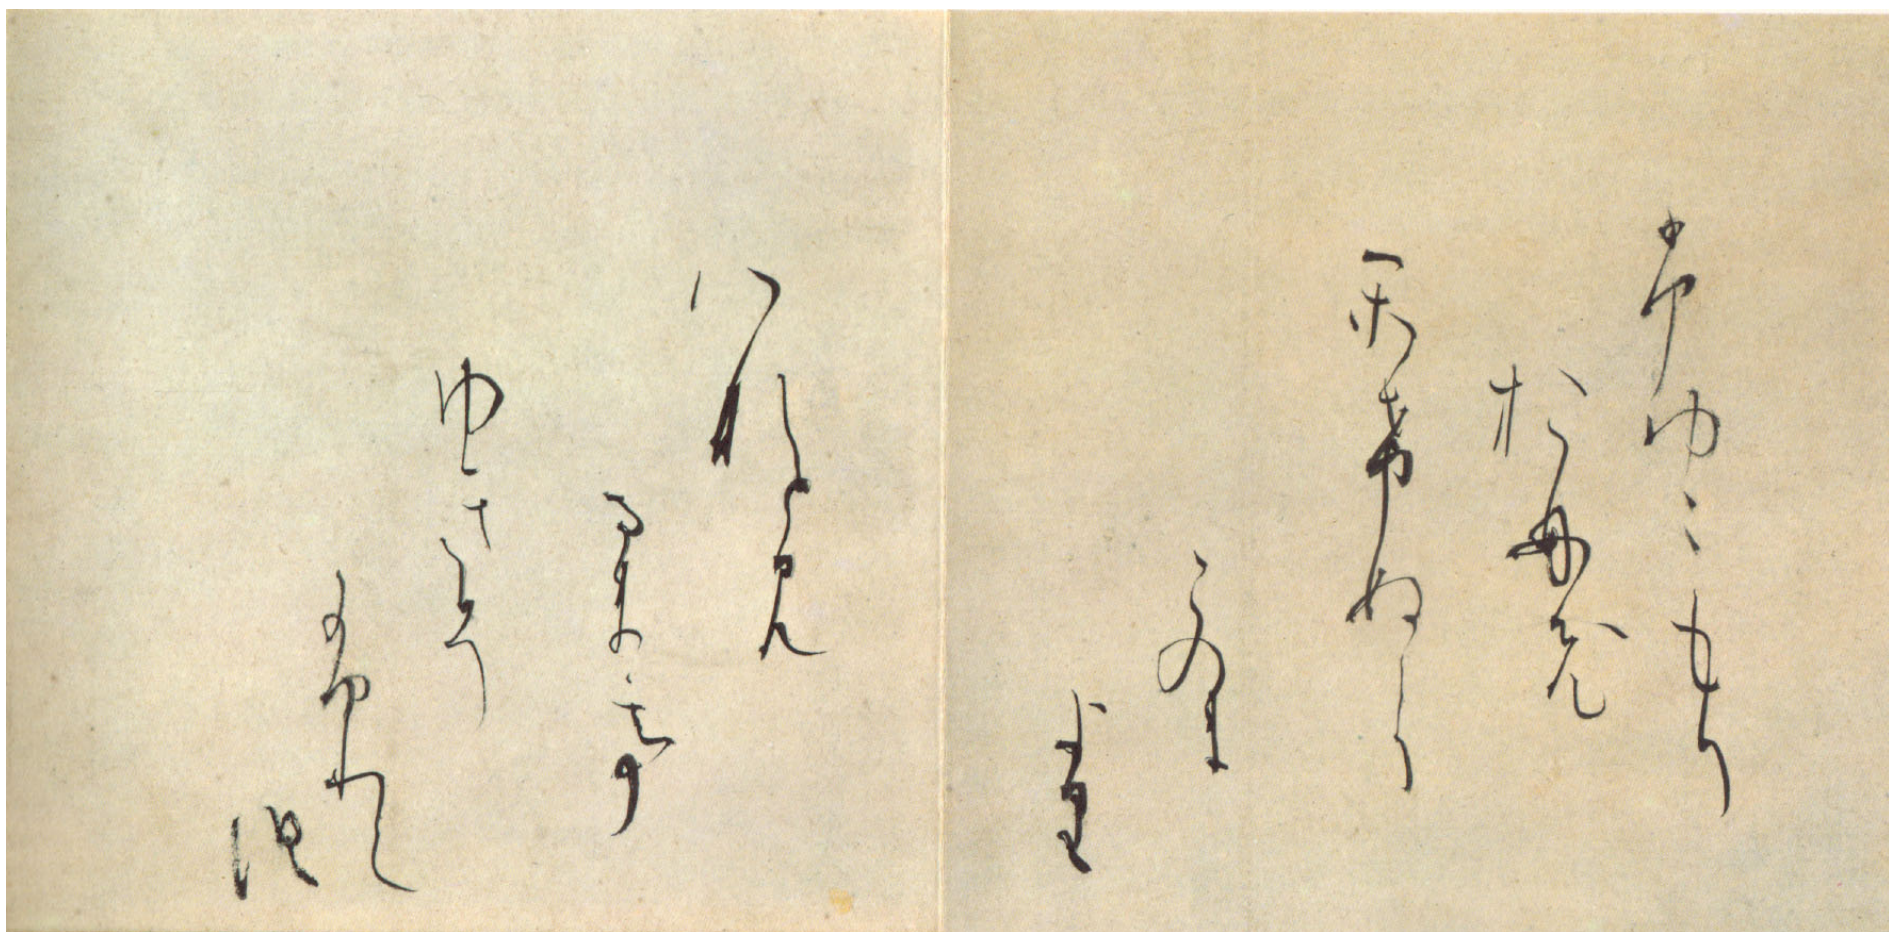 ふゆこもり
おもひ
かけぬを
このま
より
はなと見
るまて
ゆきそ
ふりけ
る